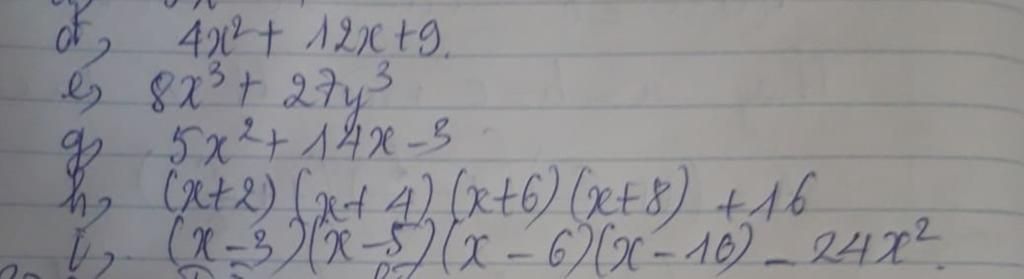 d, 4x² + 12x + 9.
e, 8x³ + 27y³
g, 5x² + 14x - 3
h, (x+2) (x+4) (x+6) (x+8) + 16
i, (x-3)(x-5)(x-6)(x-10) - 24x².